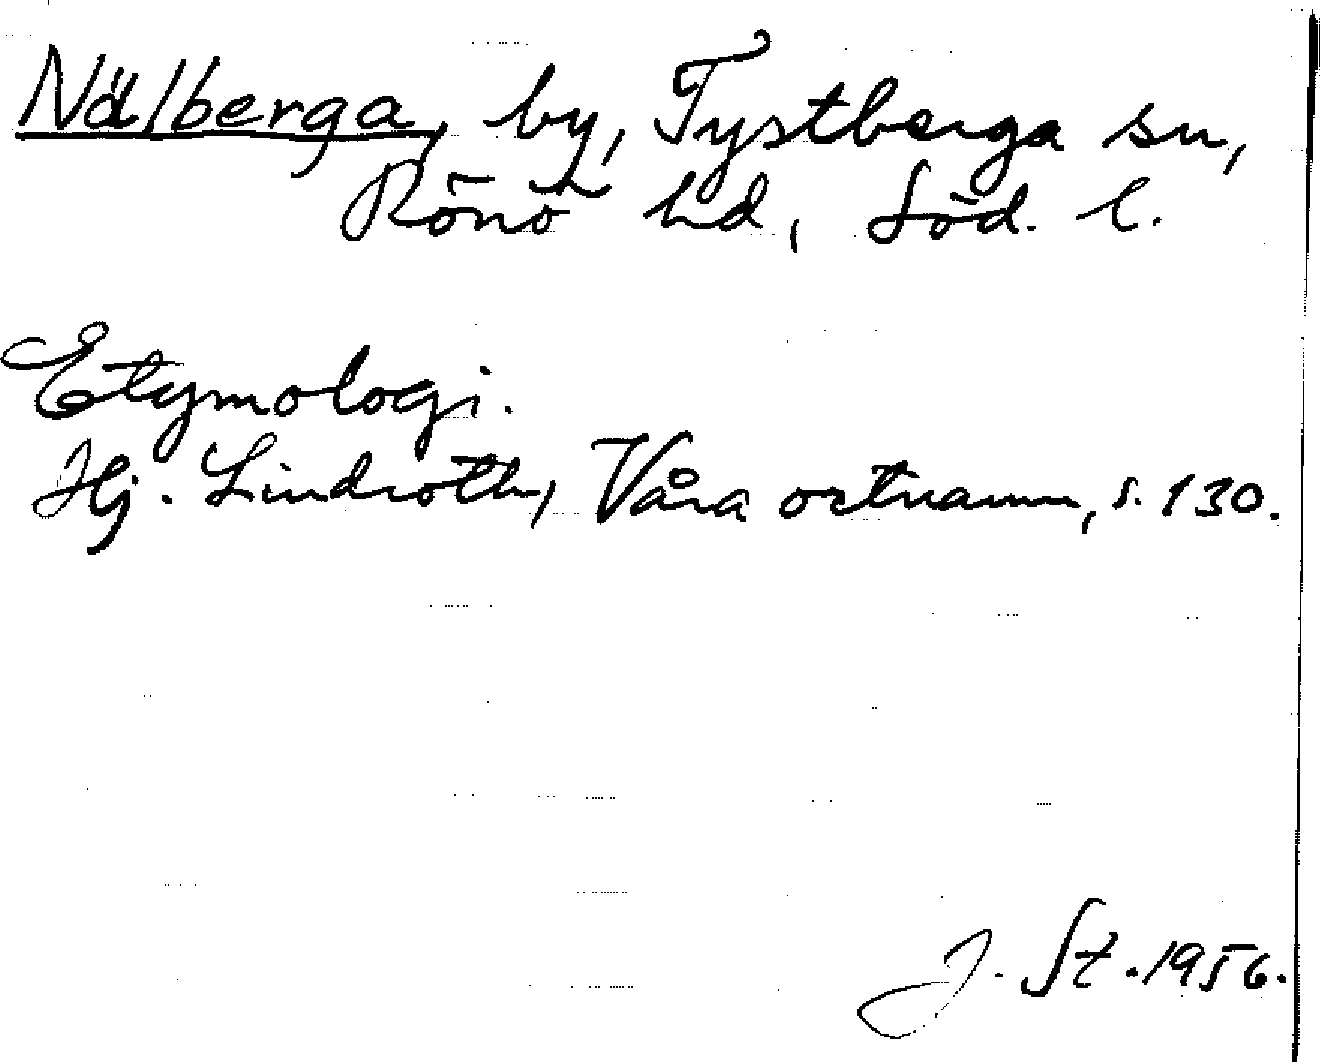 Nälberga, by, Tystberga sn,
Rönö hd, Söd. l.
Etymologi.
Hj. Lindroth, Våra ortnamn, s. 130.
J. St. 1956.